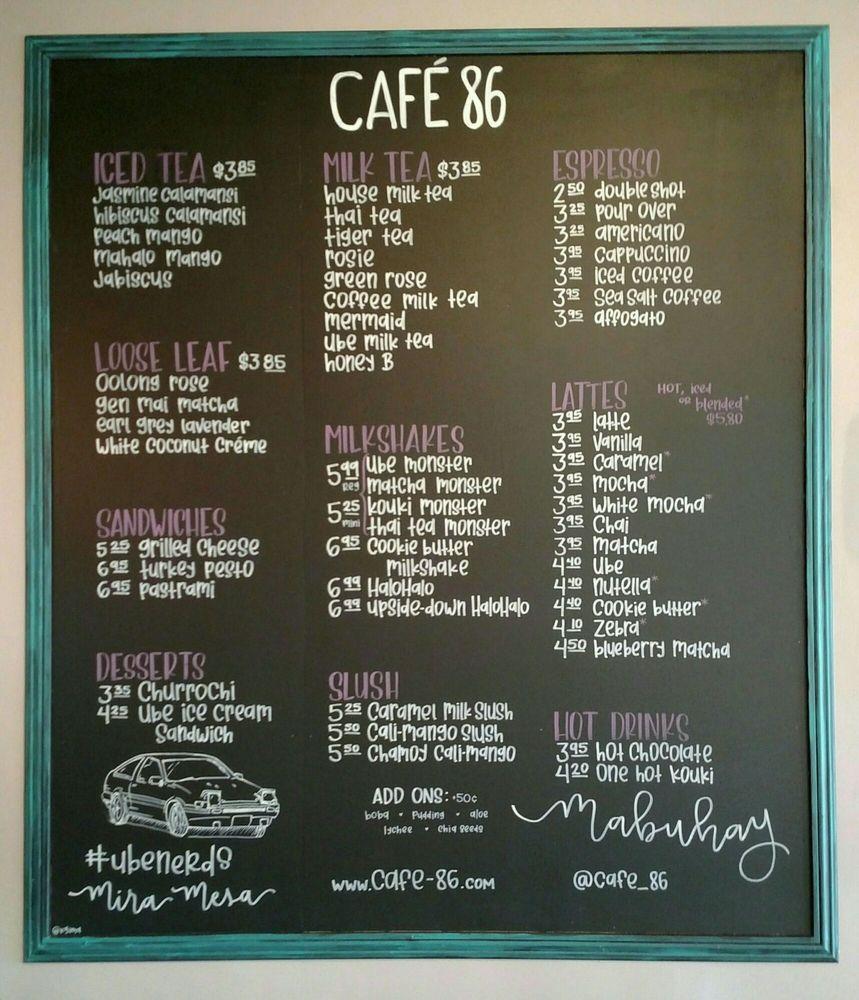 CAFÉ 86
ICED TEA $3.85
Jasmine Calamansi
hibiscus Calamansi
Peach mango
mahalo mango
Jabiscus
LOOSE LEAF $3.85
Oolong rose
gen mai matcha
earl grey lavender
White Coconut Créme
SANDWICHES
5.25 grilled Cheese
6.95 turkey Pesto
6.95 Pastrami
DESSERTS
3.35 Churrochi
4.25 Ube ice Cream
Sandwich
#ubenerds
Mira Mesa
MILK TEA $3.85
house milk tea
thai tea
tiger tea
rosie
green rose
Coffee milk tea
mermaid
Ube milk tea
honey B
MILKSHAKES
5.99 reg Ube monster
matcha monster
5.25 mini kouki monster
thai tea monster
6.95 Cookie butter
milkshake
6.99 HaloHalo
6.99 upside-down HaloHalo
SLUSH
5.25 Caramel milk Slush
5.50 Cali-mango Slush
5.50 Chamoy Cali-mango
ADD ONS: +50¢
boba • Pudding • aloe
lychee • Chia Seeds
www.Cafe-86.com
ESPRESSO
2.50 double shot
3.25 Pour Over
3.25 americano
3.95 Cappuccino
3.95 iced Coffee
3.95 Sea Salt Coffee
3.95 affogato
LATTES HOT, iced
or blended*
$5.80
3.95 latte
3.95 Vanilla
3.95 Caramel*
3.95 mocha*
3.95 White mocha*
3.95 Chai
3.95 matcha
4.40 Ube
4.40 nutella*
4.40 Cookie butter*
4.10 Zebra*
4.50 blueberry matcha
HOT DRINKS
3.95 hot Chocolate
4.20 One hot kouki
Mabuhay
@Cafe_86